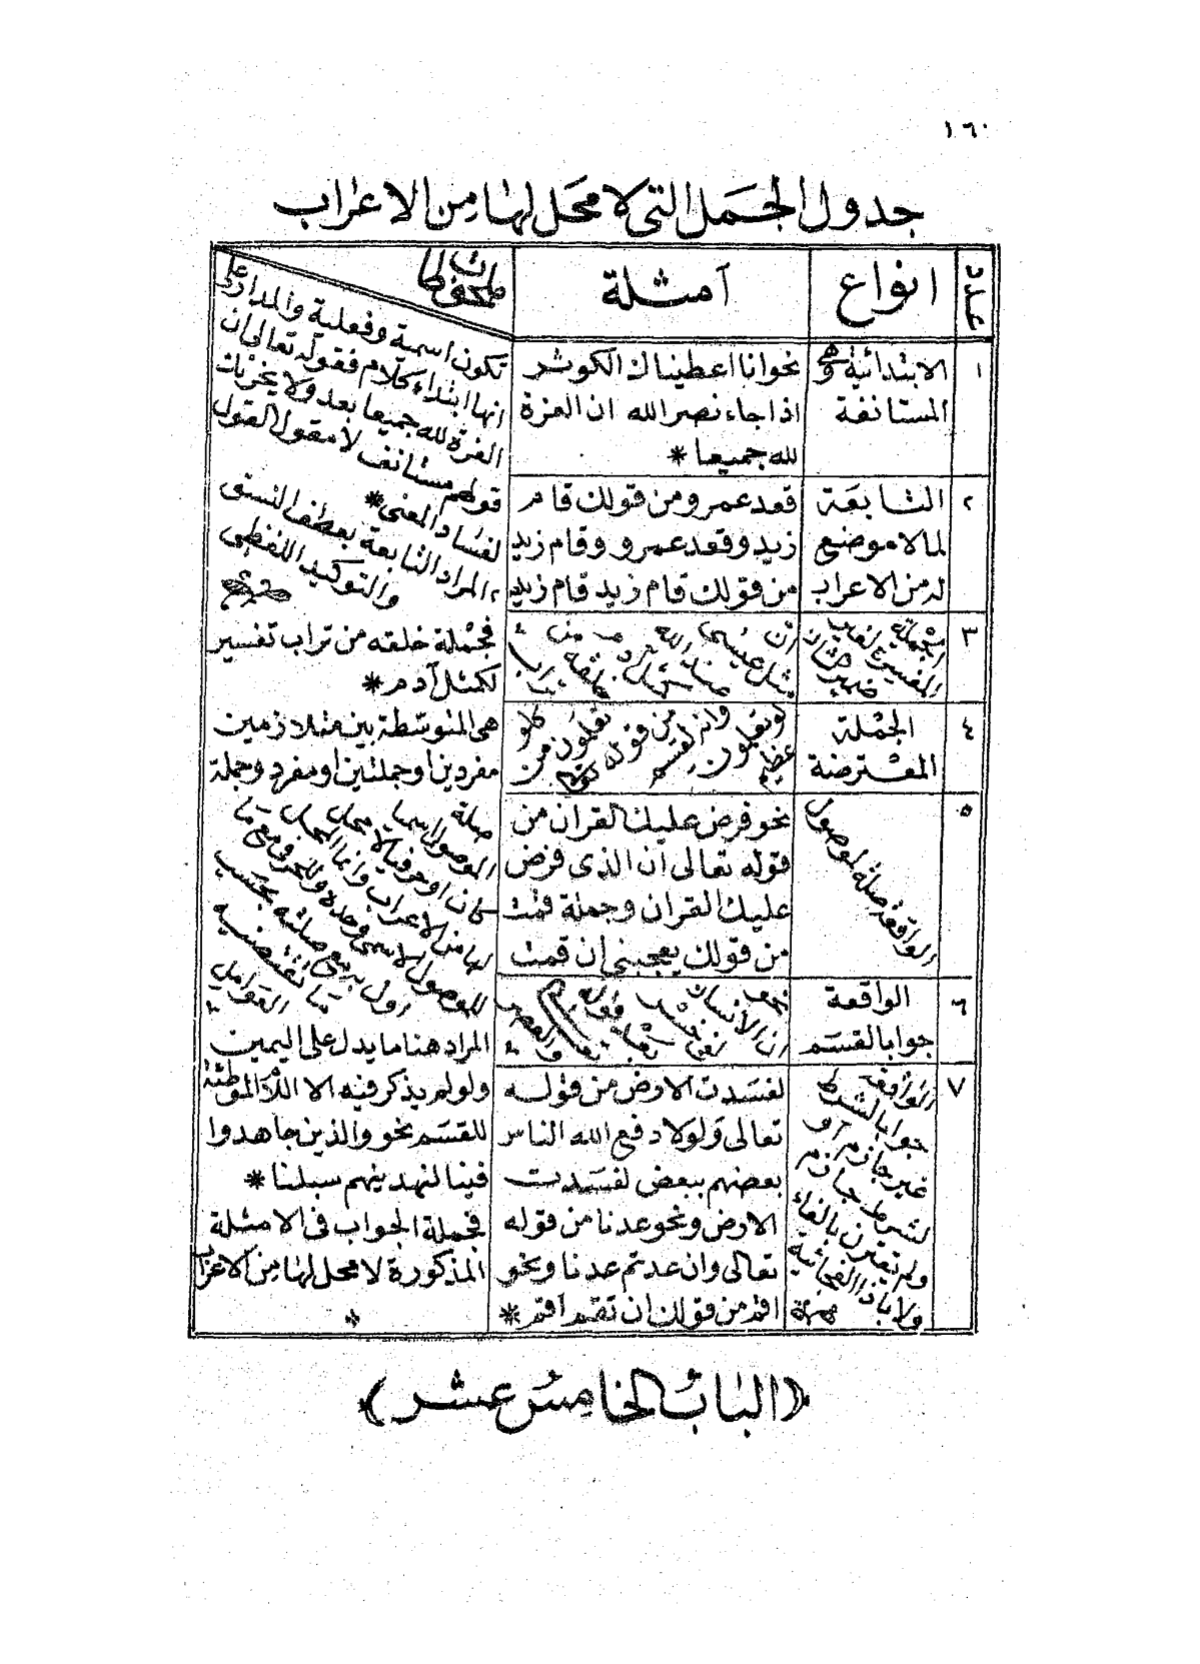 ١٦٠
جدول الجمل التي لا محل لها من الاعراب
عدد
انواع
أمثلة
ملحوظات
١
الابتدائية وهي
المستانفة
نحو انا اعطيناك الكوثر
اذا جاء نصر الله ان العزة
لله جميعا *
تكون اسمية وفعلية والمدار على
انها ابتداء كلام فقوله تعالى ان
العزة لله جميعا بعد ولا يحزنك
قولهم مستانف لا مقول القول
لفساد المعنى *
٢
التابعة
لما لا موضع
له من الاعراب
قعد عمرو من قولك قام
زيد وقعد عمرو وقام زيد
من قولك قام زيد قام زيد
٢ المراد التابعة بعطف النسق
والتوكيد اللفظي
٣
الجملة
المفسرة لغير
ضمير الشان
ان
مثل عيسى
عند الله
كمثل آدم
خلقه من
تراب
فجملة خلقه من تراب تفسير
لكمثل آدم *
٤
الجملة
المعترضة
لو تعلمون
عظيم
وانه لقسم
من قوله
تعلمون من
هي المتوسطة بين متلازمين
مفردين او جملتين او مفرد وجملة
٥
الواقعة صلة لموصول
نحو فرض عليك القران من
قوله تعالى ان الذى فرض
عليك القران وجملة قمت
من قولك يعجبني ان قمت
صلة
الموصول اسما
كان او حرفيا لا محل
لها من الاعراب وانما المحل
للموصول الاسمي وحده وللحرفي مع ما
اول به مع صلته بحسب
ما تقتضيه
العوامل
٦
الواقعة
جوابا لقسم
نحو
ان الانسان
لفي خسر
قوله
تعالى
والعصر
المراد هنا ما يدل على اليمين
ولو لم يذكر فيه الا اللام الموطئة
للقسم نحو والذين جاهدوا
فينا لنهدينهم سبلنا *
٧
الواقعة
جوابا لشرط
غير جازم او
لشرط جازم
ولم يقترن بالفاء
ولا باذا الفجائية
لفسدت الارض من قوله
تعالى ولولا دفع الله الناس
بعضهم ببعض لفسدت
الارض ونحو عدنا من قوله
تعالى وان عدتم عدنا ونحو
اقم من قولك ان تقم اقم *
فجملة الجواب في الامثلة
المذكورة لا محل لها من الاعراب
*
﴿الباب الخامس عشر﴾